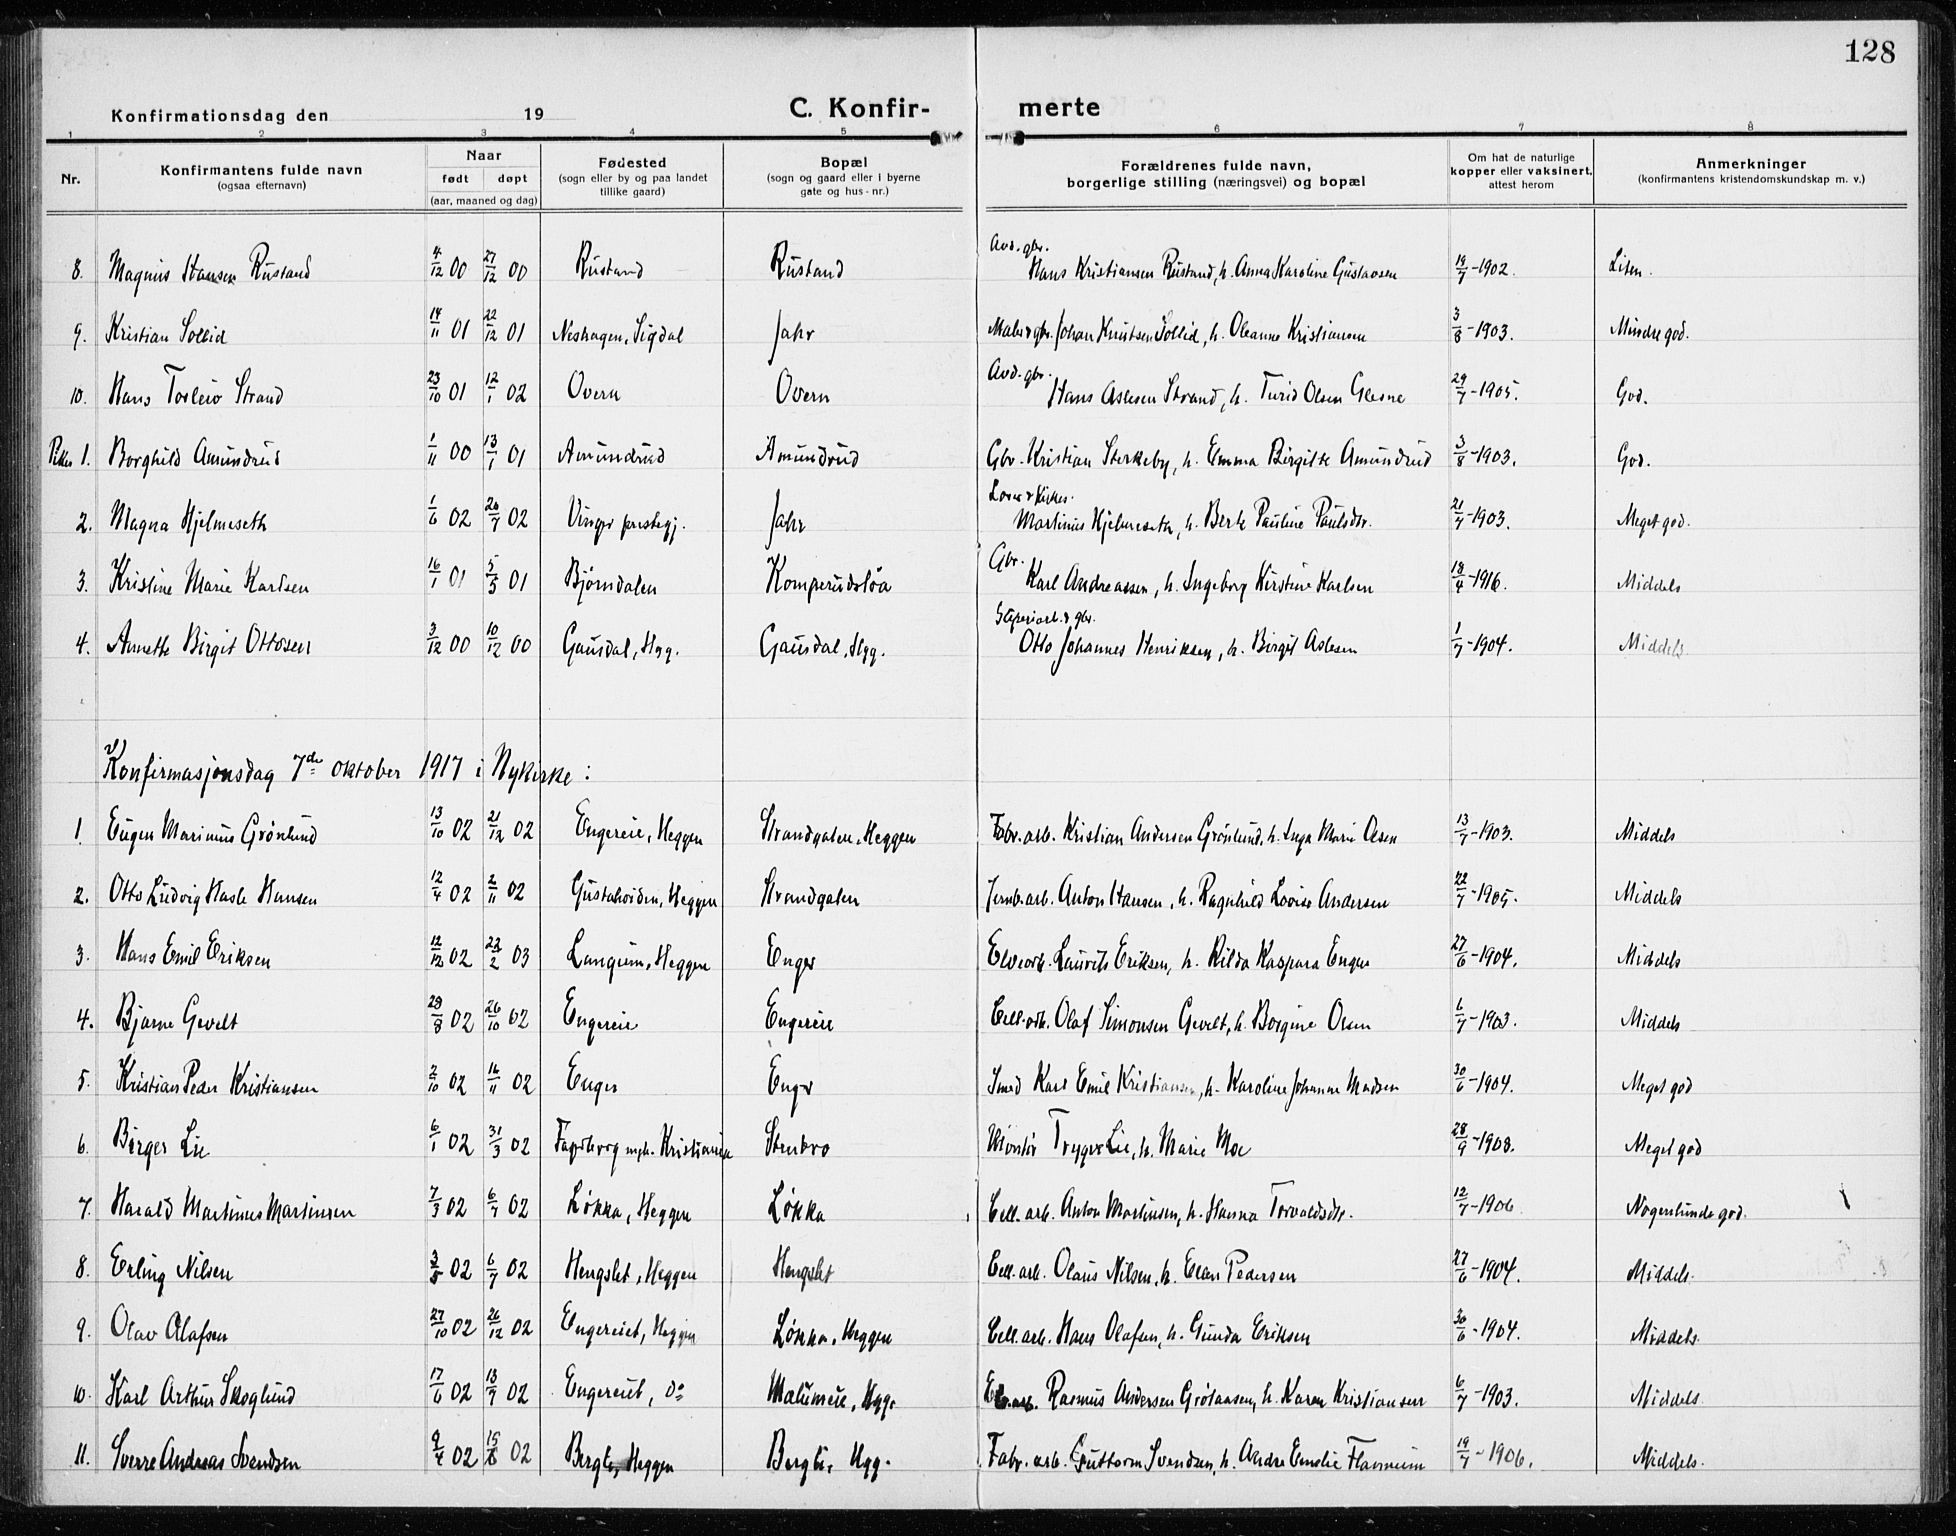 128
Konfirmationsdag den 19 C. Konfir- merte
1 2 3 4 5 6 7 8
Nr. Konfirmantens fulde navn (ogsaa efternavn) Naar født døpt (aar, maaned og dag) Fødested (sogn eller by og paa landet tillike gaard) Bopæl (sogn og gaard eller i byerne gate og hus-nr.) Forældrenes fulde navn, borgerlige stilling (næringsvei) og bopæl Om hat de naturlige kopper eller vaksinert, attest herom Anmerkninger (konfirmantens kristendomskundskap m. v.)
8. Magnus Hansen Rustand 4/12 00 27/12 00 Rustand Rustand Avd. gbr. Hans Kristiansen Rustand, h. Anna Karoline Gustavsen 19/7-1902. Liten.
9. Kristian Sollid 14/11 01 22/12 01 Neshagen, Sigdal Jahr Maler & gbr. Johan Knutsen Sollid, h. Oleanne Kristiansen 3/8-1903. Mindre god.
10. Hans Torleiv Strand 23/10 01 12/1 02 Overn Overn Avd. gbr. Hans Aslesen Strand, h. Turid Olsen Glesne 29/7-1905. God.
Piker 1. Borghild Amundrud 1/11 00 13/1 01 Amundrud Amundrud Gbr. Kristian Sterkeby, h. Emma Birgitte Amundrud 3/8-1903. God.
2. Magna Hjelmeseth 1/6 02 20/7 02 Vinger prestegj. Jahr Lærer & Kirkes. Martinius Hjelmeseth, h. Berte Pauline Paulsdtr. 21/7-1903. Meget god.
3. Kristine Marie Karlsen 16/1 01 5/5 01 Bjørndalen Komperudsløa Gbr. Karl Andreassen, h. Ingeborg Kirstine Karlsen 18/4-1916. Middels
4. Annette Birgit Ottosen 3/12 00 10/12 00 Gausdal, Hgg. Gausdal, Hgg. Sliperiarb. & gbr. Otto Johannes Henriksen, h. Birgit Aslesen 1/7-1904. Middels.
Konfirmasjonsdag 7de oktober 1917 i Nykirke:
1. Eugen Marinius Grønlund 13/10 02 21/12 02 Engereie, Heggen Strandgaten, Heggen Fabr. arb. Kristian Andersen Grønlund, h. Inga Marie Olsen 13/7-1903. Middels
2. Otto Ludvig Hasle Hansen 12/4 02 2/11 02 Heggen Strandgaten Jernb. arb. Anton Hansen, h. Ragnhild Lovise Andersen 22/7-1905. Middels
3. Hans Emil Eriksen 12/12 02 22/2 03 Langum, Heggen Enger Elvearb. Laurits Eriksen, h. Hilda Kaspara Enger 27/6-1904. Middels
4. Bjarne Gevelt 28/8 02 26/10 02 Engereie Engereie Cell. arb. Olaf Simonsen Gevelt, h. Borgine Olsen 6/7-1903. Middels
5. Kristian Peder Kristiansen 2/10 02 16/11 02 Enger Enger Smed Karl Emil Kristiansen, h. Karoline Johanne Madsen 30/6-1904. Meget god
6. Birger Lie 6/1 02 31/3 02 Fagerborg mgh. Kristiania Stenbro Montør Trygve Lie, h. Marie Moe 28/9-1908. Meget god
7. Harald Martinus Martinsen 7/3 02 6/7 02 Løkka, Heggen Løkka Cell. arb. Anton Martinsen, h. Hanna Torvaldsdtr. 12/7-1906 Nogenlunde god.
8. Erling Nilsen 3/5 02 6/7 02 Hengslet, Heggen Hengslet Cell. arb. Olaus Nilsen, h. Elen Pedersen 27/6-1904. Middels.
9. Olav Olafsen 27/10 02 26/12 02 Engereiet, Heggen Løkka, Heggen Cell. arb. Hans Olafsen, h. Gunda Eriksen 30/6-1904. Middels.
10. Karl Arthur Skoglund 17/6 02 13/9 02 Engereiet, do Malumeie, Hgg. arb. Rasmus Andersen h. Karen Kristiansen 6/7-1903. Middels.
11. Sverre Andreas Svendsen 9/4 02 15/6 02 Bergli, Heggen Bergli, Hgg. Fabr. arb. Guttorm Svendsen, h. Andre Emelie 19/7-1906. Middels.